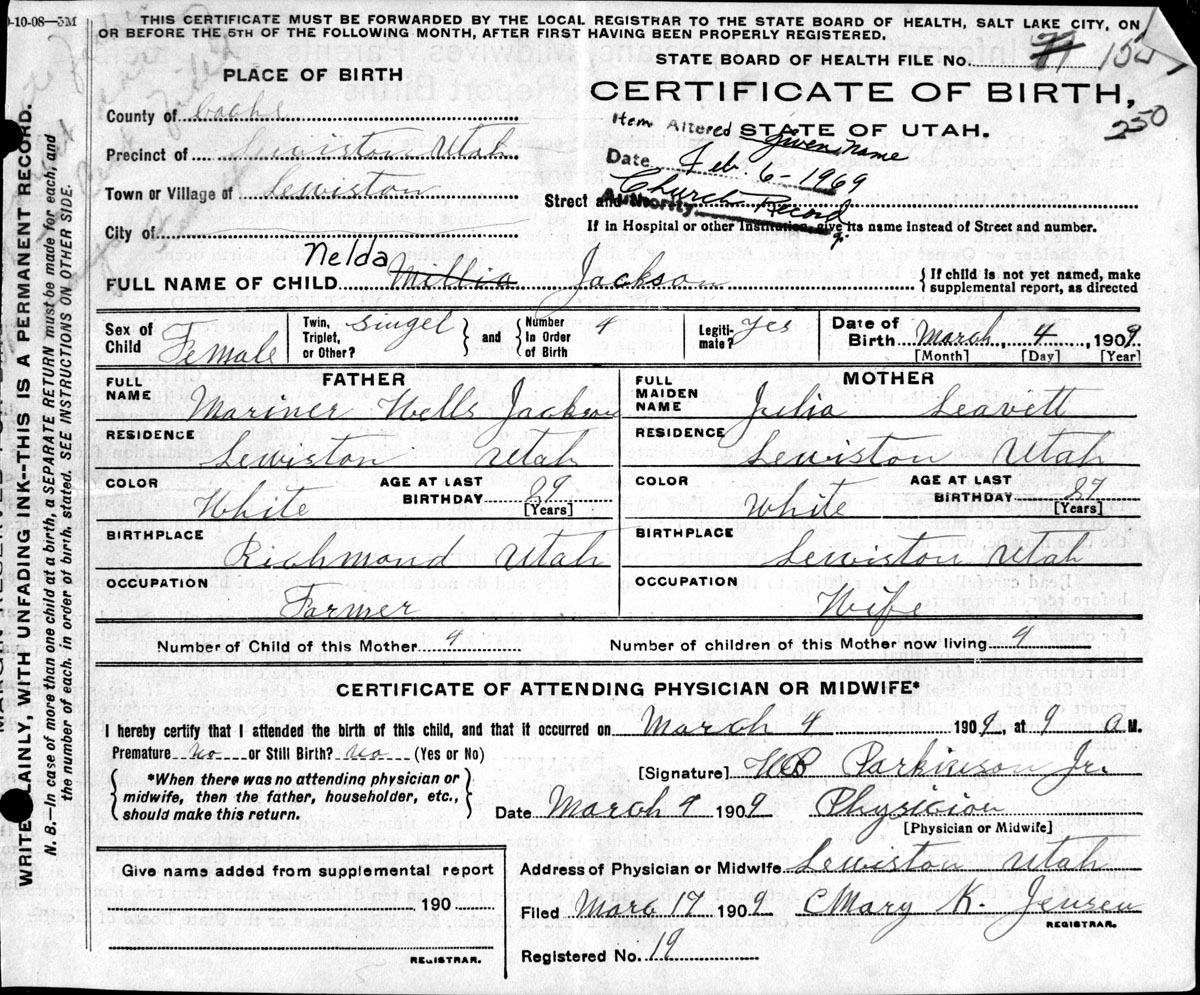 -10-08—3M
THIS CERTIFICATE MUST BE FORWARDED BY THE LOCAL REGISTRAR TO THE STATE BOARD OF HEALTH, SALT LAKE CITY, ON
OR BEFORE THE 5TH OF THE FOLLOWING MONTH, AFTER FIRST HAVING BEEN PROPERLY REGISTERED.
STATE BOARD OF HEALTH FILE No.
PLACE OF BIRTH
CERTIFICATE OF BIRTH,
250
STATE OF UTAH.
Item Altered Given Name
Date Feb 6-1969
Authority Church Record
County of Cache
Precinct of Lewiston Utah
Town or Village of Lewiston
Street and
City of
If in Hospital or other Institution, give its name instead of Street and number.
Nelda
FULL NAME OF CHILD Millia Jackson
{ If child is not yet named, make supplemental report, as directed
Sex of Child Female
Twin, Triplet, or Other? Singel } and { Number In Order of Birth 4
Legitimate? Yes
Date of Birth March, 4, 1909
[Month] [Day] [Year]
FATHER
FULL NAME Mariner Wells Jackson
RESIDENCE Lewiston Utah
COLOR White AGE AT LAST BIRTHDAY [Years]
BIRTHPLACE Richmond Utah
OCCUPATION Farmer
MOTHER
FULL MAIDEN NAME Julia Leavett
RESIDENCE Lewiston Utah
COLOR White AGE AT LAST BIRTHDAY [Years]
BIRTHPLACE Lewiston Utah
OCCUPATION Wife
Number of Child of this Mother 4 Number of children of this Mother now living 4
CERTIFICATE OF ATTENDING PHYSICIAN OR MIDWIFE*
I hereby certify that I attended the birth of this child, and that it occurred on March 4 1909, at 9 a M.
Premature no or Still Birth? no (Yes or No)
{ *When there was no attending physician or midwife, then the father, householder, etc., should make this return. }
[Signature] WB Parkinson Jr.
Date March 4 1909 Physician
[Physician or Midwife]
Give name added from supplemental report
190
REGISTRAR.
Address of Physician or Midwife Lewiston Utah
Filed Marc 17 1909 Mary K. Jensen
REGISTRAR.
Registered No. 19
WRITE PLAINLY, WITH UNFADING INK--THIS IS A PERMANENT RECORD.
N. B.—In case of more than one child at a birth, a SEPARATE RETURN must be made for each, and
the number of each, in order of birth, stated. SEE INSTRUCTIONS ON OTHER SIDE.